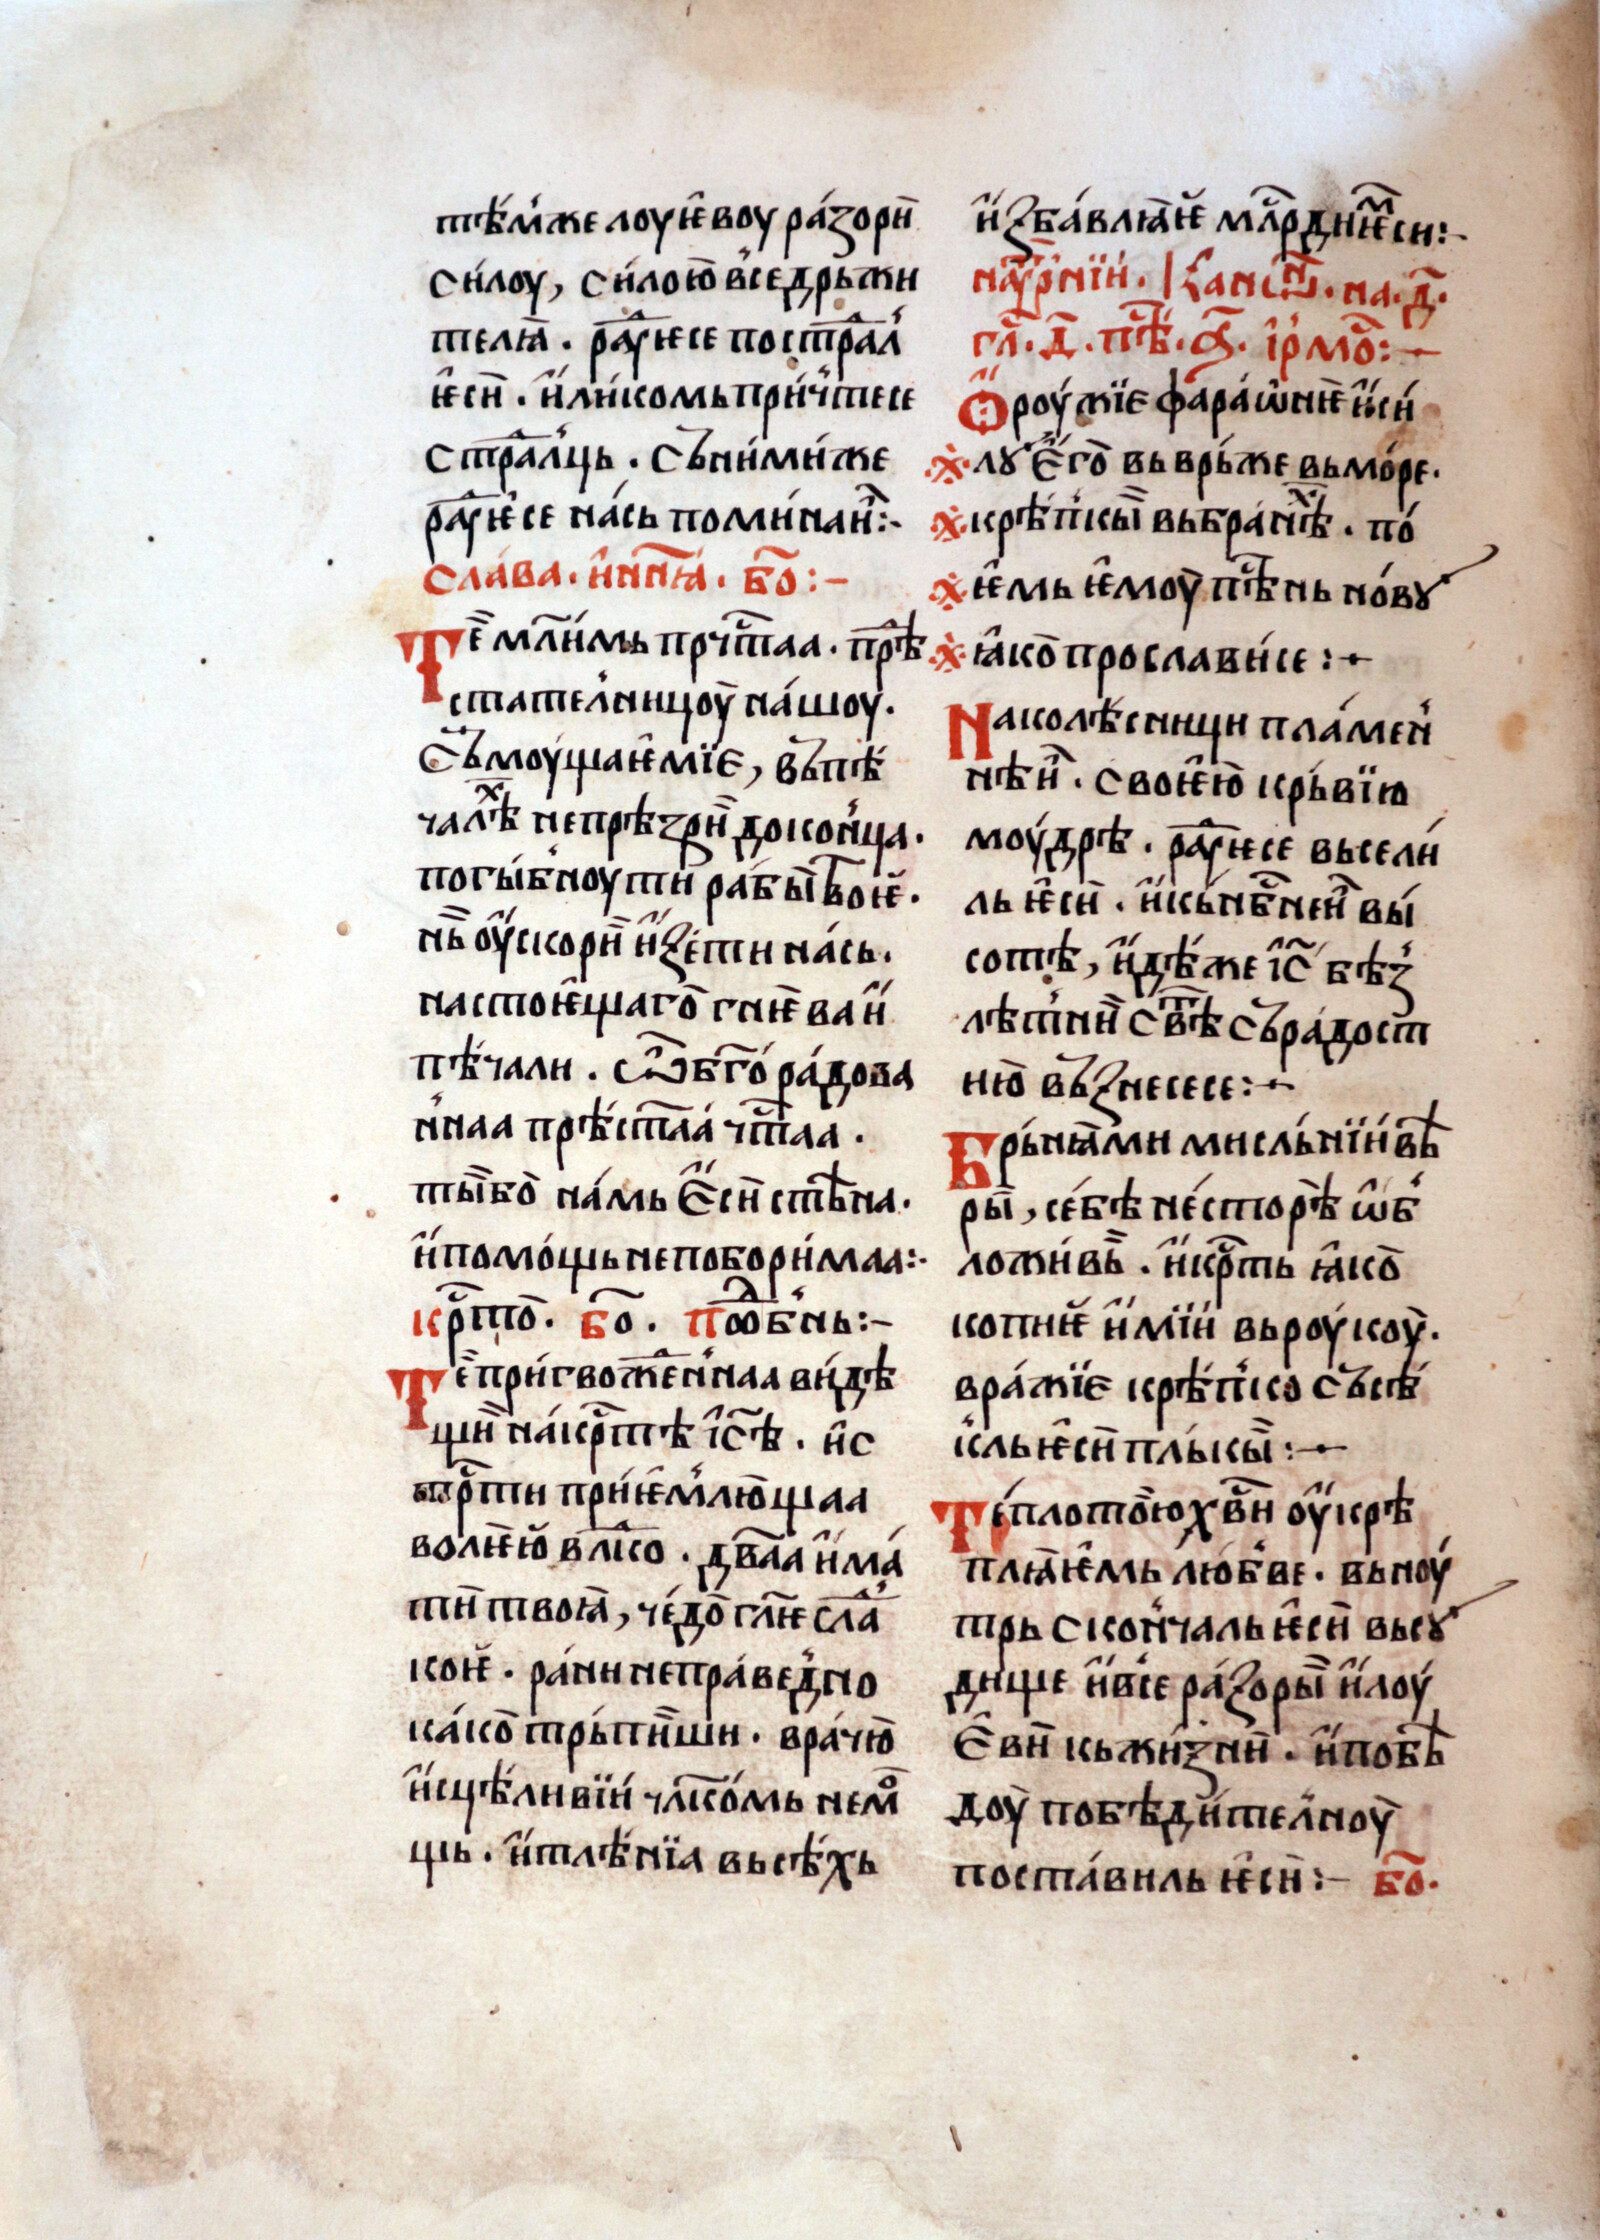 тѣ́мⷤже лоуѥ̑воу ра́зори̏
си́лоу, си́лою̑ вⷭ҇едрьжи
телꙗ̀. раⷣꙋиесе пострⷣал҆
ѥ̑си̏. и҆ ли́комь при́ч҆тесе
стрⷣал҆ць. съни́ми́же
раⷣꙋѥ̑се на́сь поми́наи҆:·
сла́ва. и҆нн꙯ꙗ́. бо҃:–
Те̏ мл҃и́мь прчⷭ҇таа. прѣⷣ
стател҆ницоу̏ на́шоу.
Съмоу́щаѥ̑мїе, въпѣ́
чалⷯѣ не прѣ́зри̏ до кон҆ца.
погы́б҆ноути рабы̏ твоѥ̀.
нь̏ оу҆скори̏ и҆ꙁе́ти на́сь.
настоѥ̑щаго̏ гнѥ́ва и҆
пѣ́чали. ѡ҃ бг҃о́ра́дова
н҆наа прѣ́ст҃аа́ чⷭ҇таа́.
ты̏ бо̏ на́мь е҆си̏ стѣна.
и҆ помо́щь непобори́маа:·
крⷭ҇то̏. бо҃. поⷣѡб҆нь:–
Те̏ при́гвожⷣен҆наа ви́дѣ
щи̏ на́ крⷭ҇тѣ і҆с҃ѣ. и҆ с
трⷭ҇ти при́ѥ̑м҆лю̑щаа
волѥ́ю̏ влⷣко. два҃а и҆ ма́
ти̏ твоꙗ̏, че́до̏ гл҃ѥ слаⷣ
коѥ̀. ра́ни неправед҆но
ка́ко̏ трьпи̏ши. вра́чю̏
и҆сцѣ́ливїи́ чл҃ко́мь немо
щь. и҆ тлѣ́нїа вьсѣ́хь
и҆ꙁба́влꙗ̑ѥ̀ млⷭ҇рдниѥⷨси:·
на ꙋⷮр҆нїи́. Кано́нь. на. д҃.
гл҃. д҃. пⷭ҇ѣ. а҃. і҆рмо̏:–
Ѻ҆роу́жїе фарао́нѥ и҆ си́
лꙋ е҆го̏ вь врь́же вь мо́ре.
крѣ́п҆кы̏ вь браⷯнѣ. по́
ѥ̑мь ѥ̑моу̏ пⷭ҇ѣнь но́вꙋ
ꙗ҆ко̏ прослави́се:·
На колѣсници пла́мен҆
нѣи҆. своѥ̑ю̏ крь́вїю
моу́дрѣ. раⷣꙋиесе вьсели́
ль ѥ̑си̏. и҆ кь нбⷭ҇неи҆ вы́
сотѣ, и҆дѣ́же і҆с҃ бѣꙁ҆
лѣт҆ни̏ свⷮѣ съ ра́дост
ию̏ въꙁнесесе:·
Брь́нꙗ̑ми ми́сль́нїи́ вѣ
ры̏, се́бѣ не́сторѣ̏ ѡ҆б҆
ложи́вь̏. и҆ крⷭ҇ть ꙗ҆ко̏
копиѥ̀ и҆мїи́ вь роу́коу̏.
вра́жїе крѣ́п҆ко съсѣ́
к҆ль ѥ̑си̏ плькы̏:·
Те́плото̏ю хв҃и̏ оу҆крѣ
плꙗ̑ѥ̑мь лю́б҆ве. вьноу́
трь скон҆чаль ѥ̑си̏ вь сꙋ
дище и҆ вⷭ҇е раꙁоры̏ и҆ лоу́
е҆ви̏ кь жи́ꙁни̏. и҆ побѣ
доу̏ побѣди́тел҆ноу̏
поста́виль ѥ̑си̏:– бо҃.